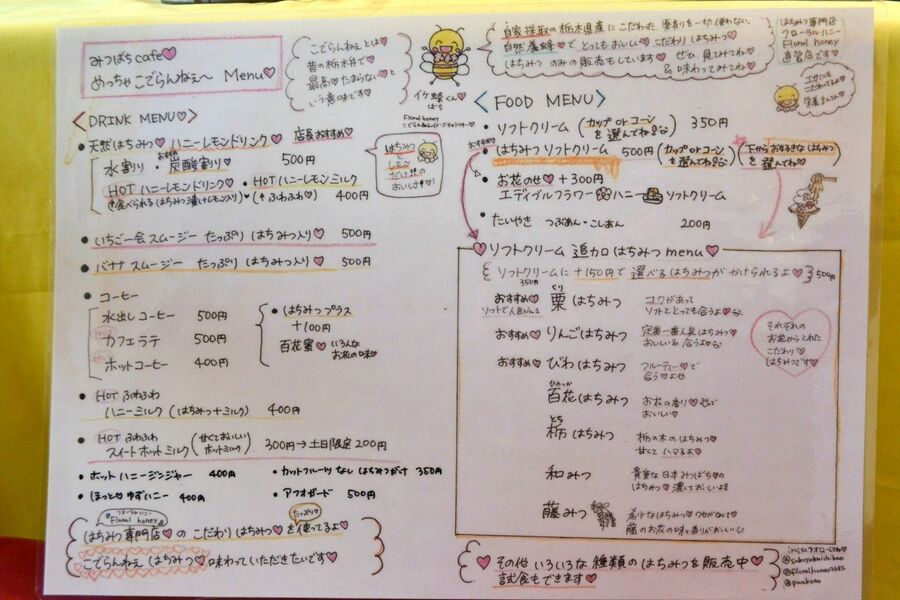 みつばちcafe♡
めっちゃこでらんねぇ〜 Menu♡
こでらんねぇ とは♡
昔の栃木弁で
最高♡たまらない♡と
いう意味です♡
イケ蜂くん♡
はち
Floral honey
自家採取の栃木県産にこだわった 薬剤を一切使わない
自然養蜂♡で とってもおいしい♡こだわり はちみつ♡
はちみつ のみの販売もしています♡ ぜひ 見てみてね♡
味わってみてね♡
はちみつ専門店
フローラルハニー
Floral honey
直営店です♡
<DRINK MENU♡>
• 天然はちみつ♡ハニーレモンドリンク♡ 店長おすすめ♡
水割り・炭酸割り♡ 500円
HOT ハニーレモンドリンク♡ • HOT ハニーレモンミルク
(食べられるはちみつ漬けレモン入り)♡ (↑ふわふわ♡) 400円
はちみつ
と
レモン
だけ!!の
おいしさ!♡
• いちご一会スムージー たっぷりはちみつ入り♡ 500円
• バナナスムージー たっぷりはちみつ入り♡ 500円
• コーヒー
水出しコーヒー 500円
カフェラテ 500円
ホットコーヒー 400円
• はちみつプラス
+100円
百花蜜♡ いろんな
お花の味♡
• HOT ふわふわ
ハニーミルク (はちみつ+ミルク) 400円
• HOT ふわふわ
スイートホットミルク (甘くておいしい ホットミルク) 300円→土日限定200円
• ホットハニージンジャー 400円
• カットフルーツなし はちみつがけ 350円
• ほっと♡ゆずハニー 400円
• アフォガード 500円
フローラルハニー
"Floral honey"
たっぷり
はちみつ専門店♡の こだわりはちみつ♡を使ってるよ♡
こでらんねぇ はちみつ♡味わっていただきたいです♡
<FOOD MENU>
• ソフトクリーム (カップorコーンを選んでね!) 350円
おすすめ♡
• はちみつソフトクリーム 500円 (カップorコーンを選んでね♡) (下からお好きなはちみつを選んでね♡)
• お花のせ♡+300円
エディブルフラワー ハニー ソフトクリーム
• たいやき つぶあん・こしあん 200円
♡ソフトクリーム 追加はちみつmenu♡
ソフトクリームに+150円で選べるはちみつがかけられるよ♡ 500円
350円
おすすめ♡ 栗はちみつ コクがあって
くり
ソフトで人気No.1 ソフトととっても合うよ♡
おすすめ♡ りんごはちみつ 定番一番人気はちみつ♡
おいしい& 合うよ♡
おすすめ♡ びわはちみつ フルーティー♡で
合う♡よぜ
ひゃっか
百花はちみつ お花の香り♡で
おいしい♡
とち
栃はちみつ 栃の木のはちみつ♡
甘くて ハマるよ♡
和みつ 貴重な日本みつばち♡の
はちみつ♡ 濃しておいしいよ♡
藤みつ 希少なはちみつ♡クセがなくて♡
藤のお花の味と香りがおいしい♡
それぞれの
お花からとれた
こだわり♡
はちみつです♡
♡その他 いろいろな 種類のはちみつを販売中♡
試食もできます♡
instaフォローしてね♡